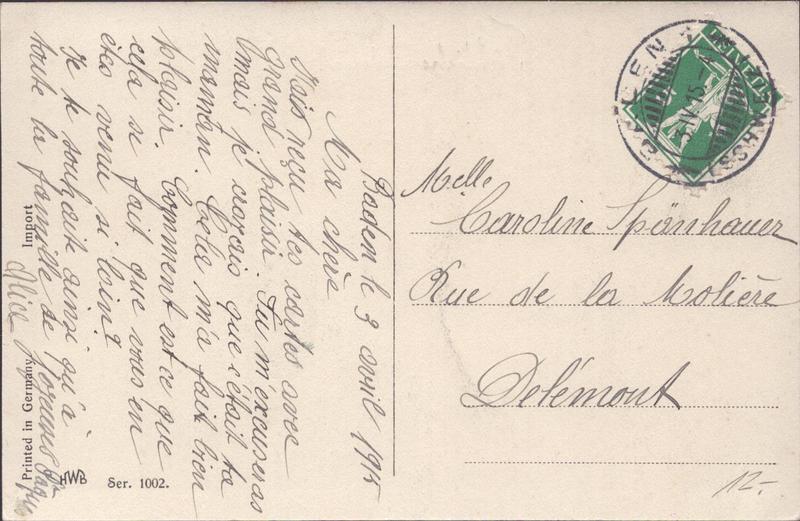 Baden le 3 avril 1915
Ma chère
J'ais reçu tes cartes avec
grand plaisir. Tu m'excuseras
mais je croyais que c'était ta
maman. Cela m'a fait bien
plaisir. Comment est ce que
cela se fait que vous en
êtes venu si loin?
Je te souhaite ainsi qu'à
toute la famille de
Alice
BADEN
3.IV.15.-4
Melle
Caroline Spönhauer
Rue de la Molière
Delémont
12.-
Printed in Germany Import
HWB Ser. 1002.